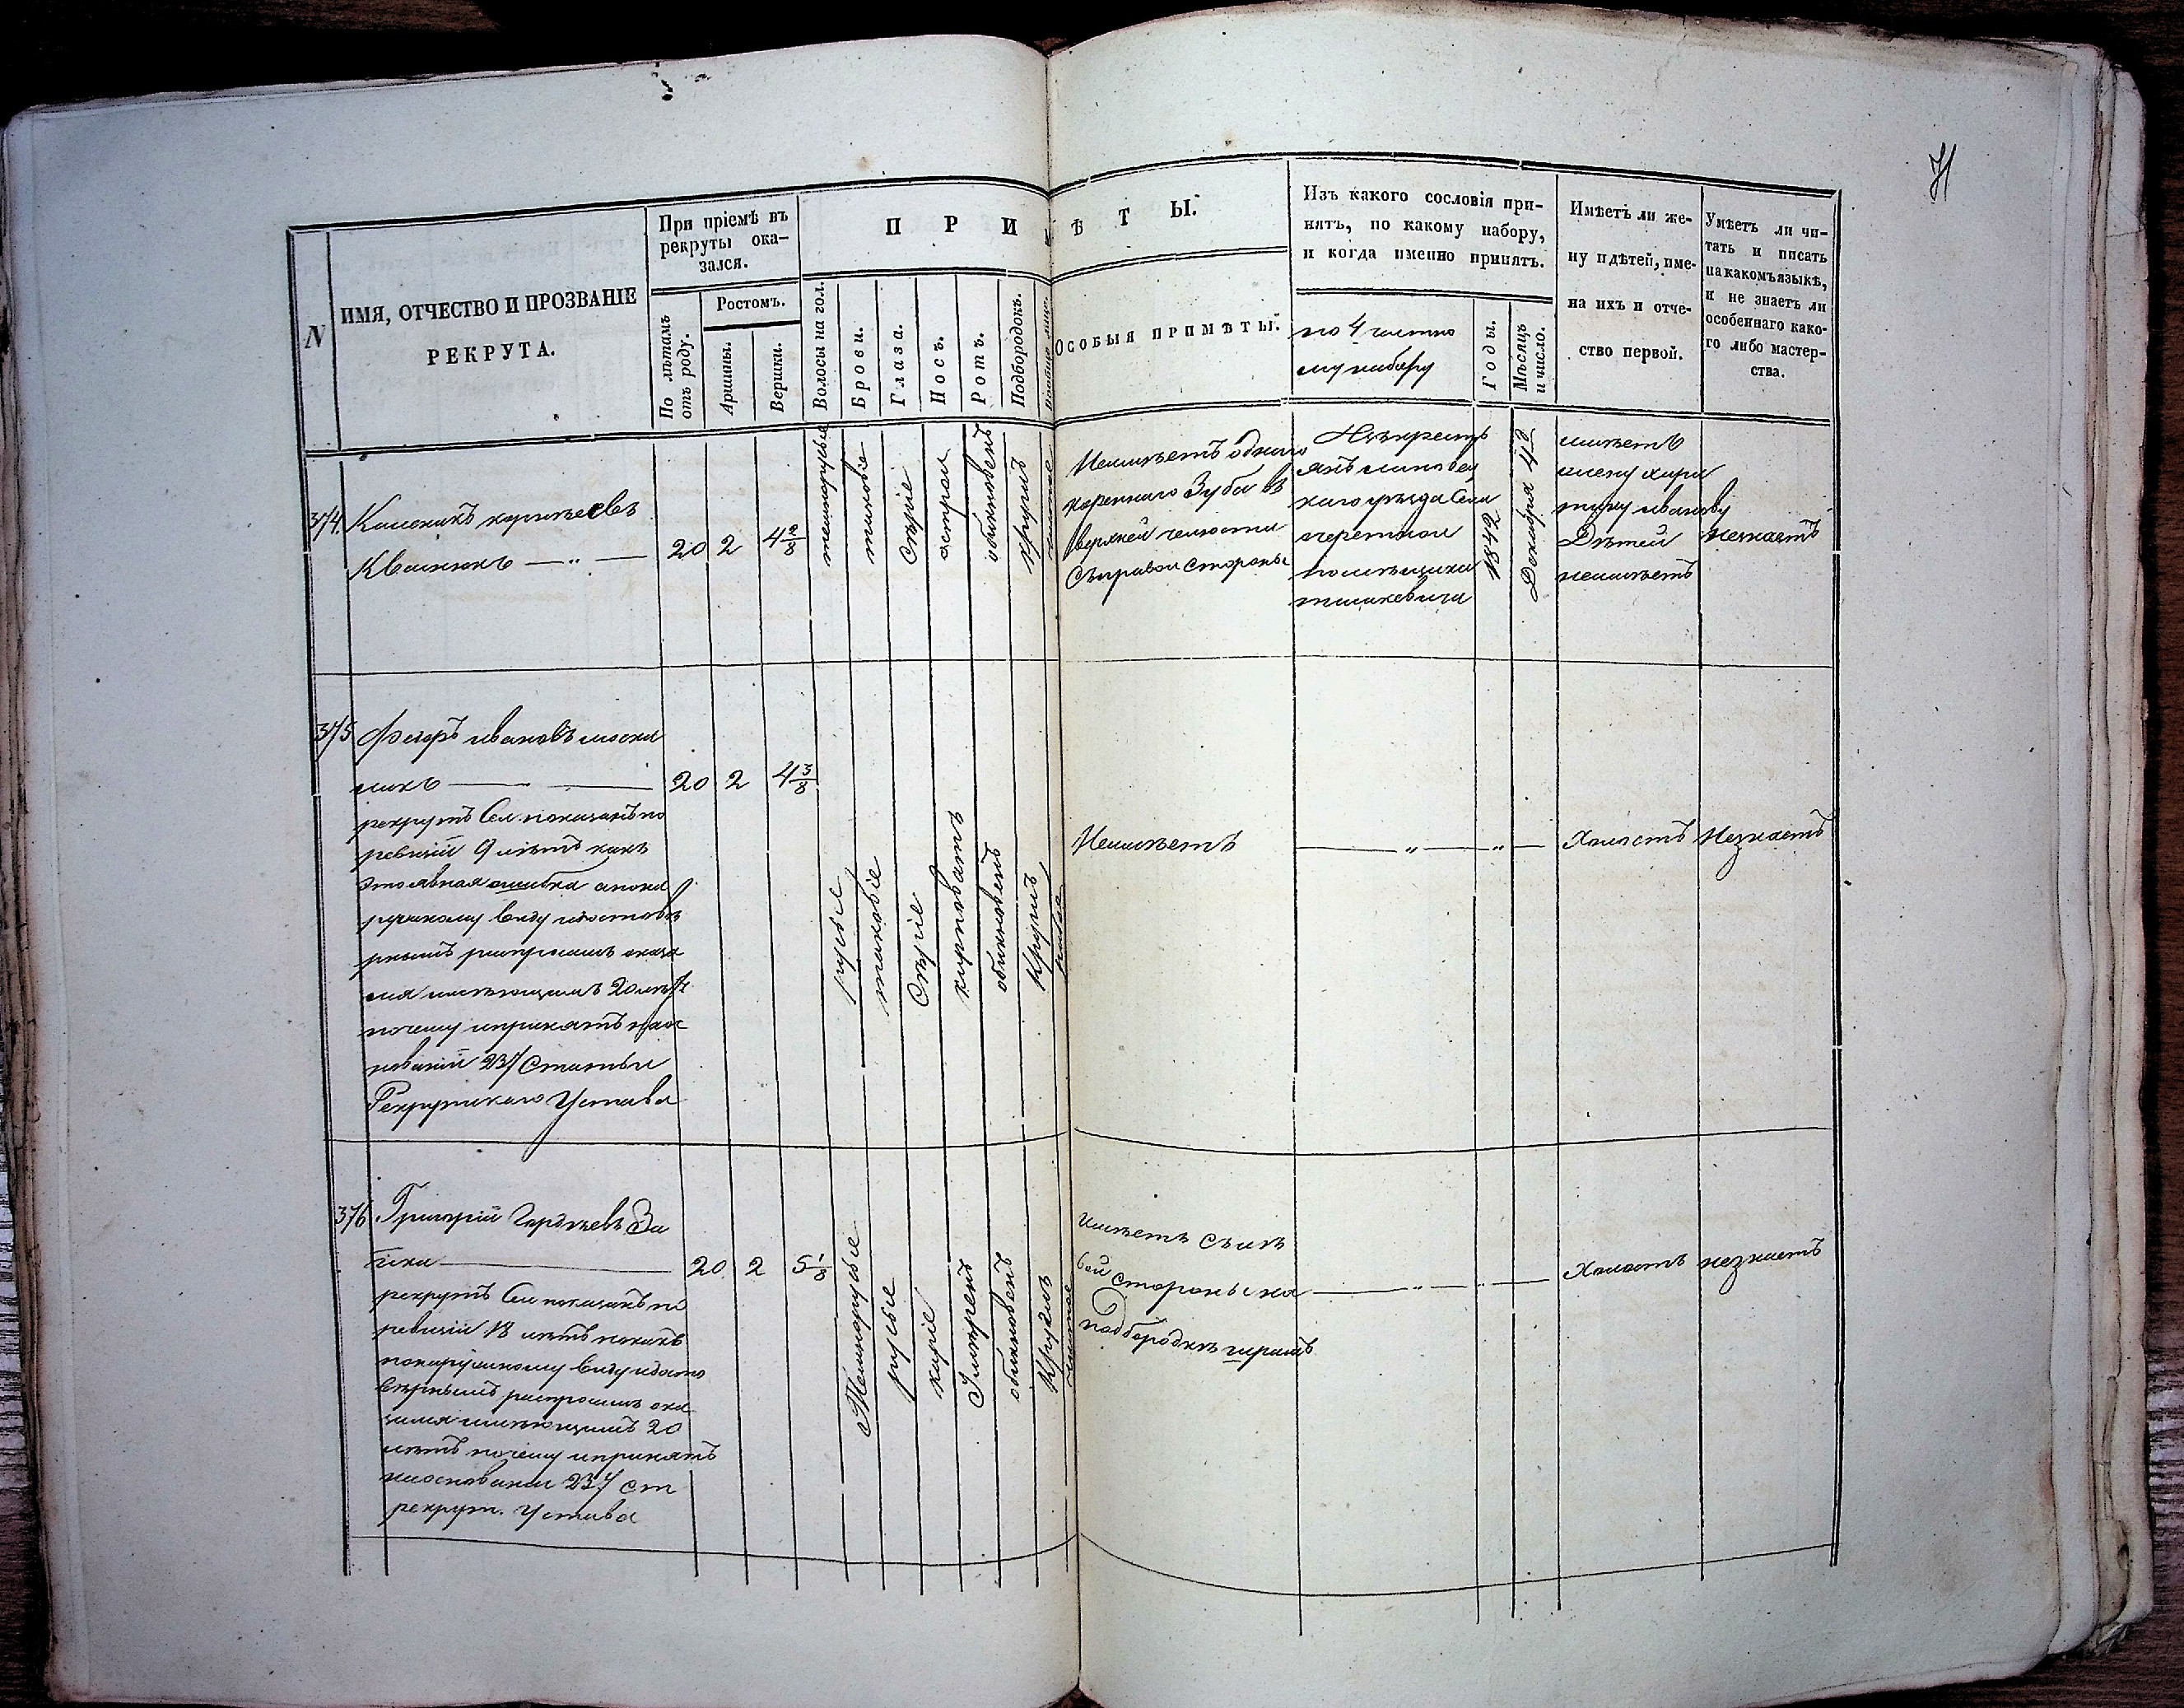 71
N
ИМЯ, ОТЧЕСТВО И ПРОЗВАНІЕ
РЕКРУТА.
При пріемѣ въ
рекруты ока-
зался.
По лѣтамъ
отъ роду.
Ростомъ.
Аршины.
Вершки.
ПРИМѢТЫ.
Волосы на гол.
Брови.
Глаза.
Носъ.
Ротъ.
Подбородокъ.
Вообще лице.
ОСОБЫЯ ПРИМѢТЫ.
Изъ какого сословія при-
нятъ, по какому набору,
и когда именно принятъ.
по 4 частно
му набору
Годы.
Мѣсяцъ
и число.
Имѣетъ ли же-
ну и дѣтей, име-
на ихъ и отче-
ство первой.
Умѣетъ ли чи-
тать и писать
на какомъ языкѣ,
и не знаетъ ли
особеннаго како-
го либо мастер-
ства.
374.
Каленикъ корнѣевъ
Кваснюкъ — „ —
20
2
4 2/8
темнорусые
таковіе
Сѣріе
острой
обикновенъ
круглъ
чистое
Неимѣетъ одного
кореннаго Зуба въ
верхней челюсти
Съправой стороны
Изъ крестъ
янъ
каго уѣзда Села
помѣщика
1842
Декабря
имѣетъ
жену хари
тину иванову
Дѣтей
неимѣетъ
незнаетъ
375
Федоръ ивановъ моска
люкъ — —
20
2
4 3/8
рекрутъ Сей показанъ по
ревизіи 9 лѣтъ какъ
это явная ошибка а пона
ружному виду идостовѣ
рнымъ распросамъ оказа
лся имѣющимъ 20 лѣтъ
почему ипринятъ наос
нованіи 237 Статьи
Рекрутскаго Устава
русые
таковіе
Сѣріе
курноватъ
обикновенъ
круглъ
Неимѣетъ
— „ — „ —
Холостъ
Незнаетъ
376
Григорій Гордѣевъ За
їка —
20
2
5 1/8
рекрутъ Сей показанъ по
ревизіи 18 лѣтъ нокакъ
понаружному виду идосто
вѣрнымъ распросамъ ока
зался имѣющимъ 20
лѣтъ почему ипринятъ
наоснованіи 237 ст
рекрут. Устава
Темнорусые
русые
каріе
Умѣренъ
обикновенъ
круглъ
чистое
имѣетъ Сълѣ
вой стороны на
подбородкѣ шрамъ
— „ —
Холостъ
незнаетъ